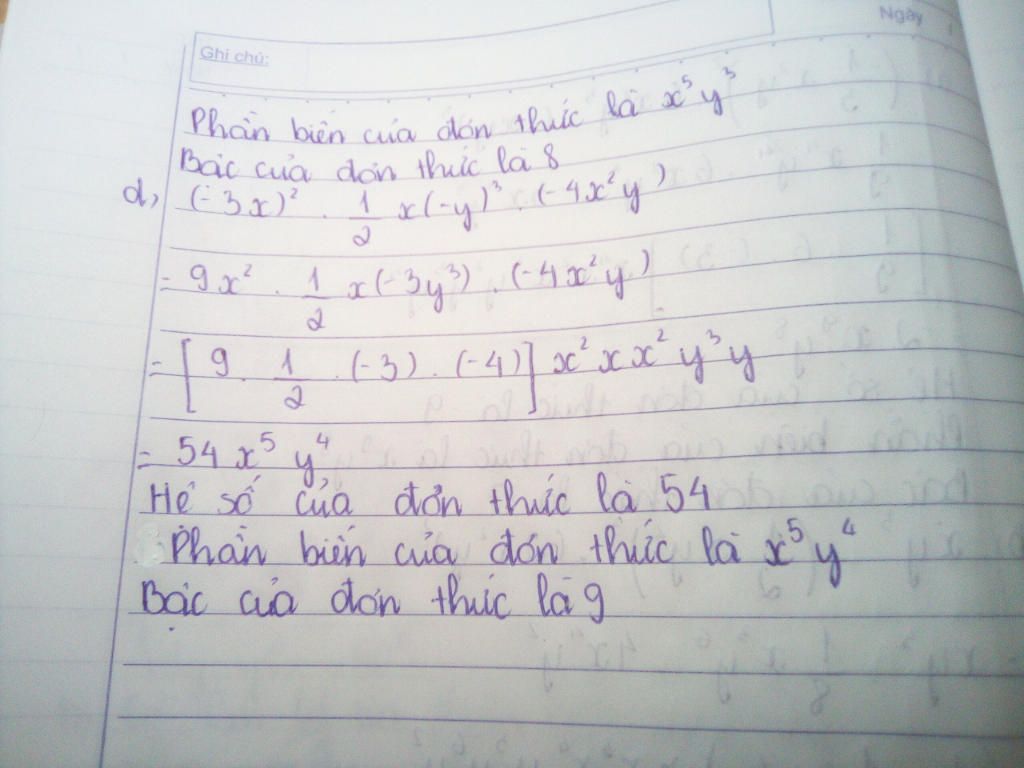 Ngày
Ghi chú:
Phần biến của đơn thức là x⁵y³
Bậc của đơn thức là 8
d, (-3x)² . 1/2 x(-y)³ . (-4x²y)
= 9x² . 1/2 x(-3y³) . (-4x²y)
= [9 . 1/2 . (-3) . (-4)] x² x x² y³ y
= 54 x⁵ y⁴
Hệ số của đơn thức là 54
Phần biến của đơn thức là x⁵y⁴
Bậc của đơn thức là 9